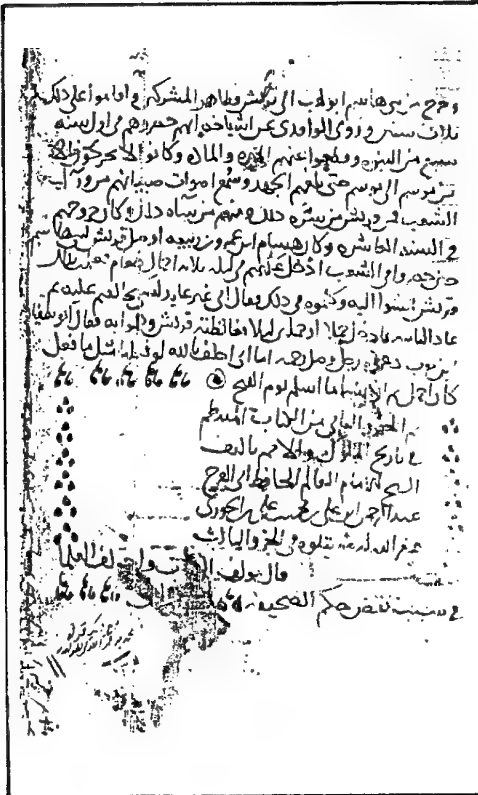 وخرج من بني هاشم ابو لهب الى قريش فظاهر المشركين فاقاموا على ذلك
ثلاث سنين وروى الواقدي عن اشياخه انهم حصروهم في اول سنة
سبع من النبوة وقطعوا عنهم الميرة والمادة وكانوا لا يخرجون الا
من موسم الى موسم حتى بلغهم الجهد وسمع اصوات صبيانهم من وراء
الشعب فمن قريش من سره ذلك ومنهم من ساه ذلك وكان خروجهم
في السنة العاشرة وكان هشام ابن عمرو بن ربيعة اوصل قريش لبني هاشم
حين حصروا في الشعب ادخل عليهم في ليلة ثلاثة احمال طعام فعلمت بذلك
قريش فمشوا اليه وكلموه في ذلك فقال اني غير عايد لشي خالفكم عليه ثم
عاد الثانية فادخل حملا او حملين ليلا فغالظته قريش وهموا به فقال ابو سفيان
بن حرب دعوه رجل وصل رحمه اما اني احلف بالله لو فعلنا مثل ما فعل
كان اجمل ثم ان هشاما اسلم يوم الفتح
تم الجزو الثاني من كتاب المنتظم
في تاريخ الملوك والامم تاليف
الشيخ الامام العالم الحافظ ابي الفرج
عبد الرحمن ابن علي بن محمد بن علي بن الجوزي
غفر الله له يتلوه في الجزو الثالث
قال مولف الكتاب واختلف العلما
في سبب نقض حكم الصحيفة